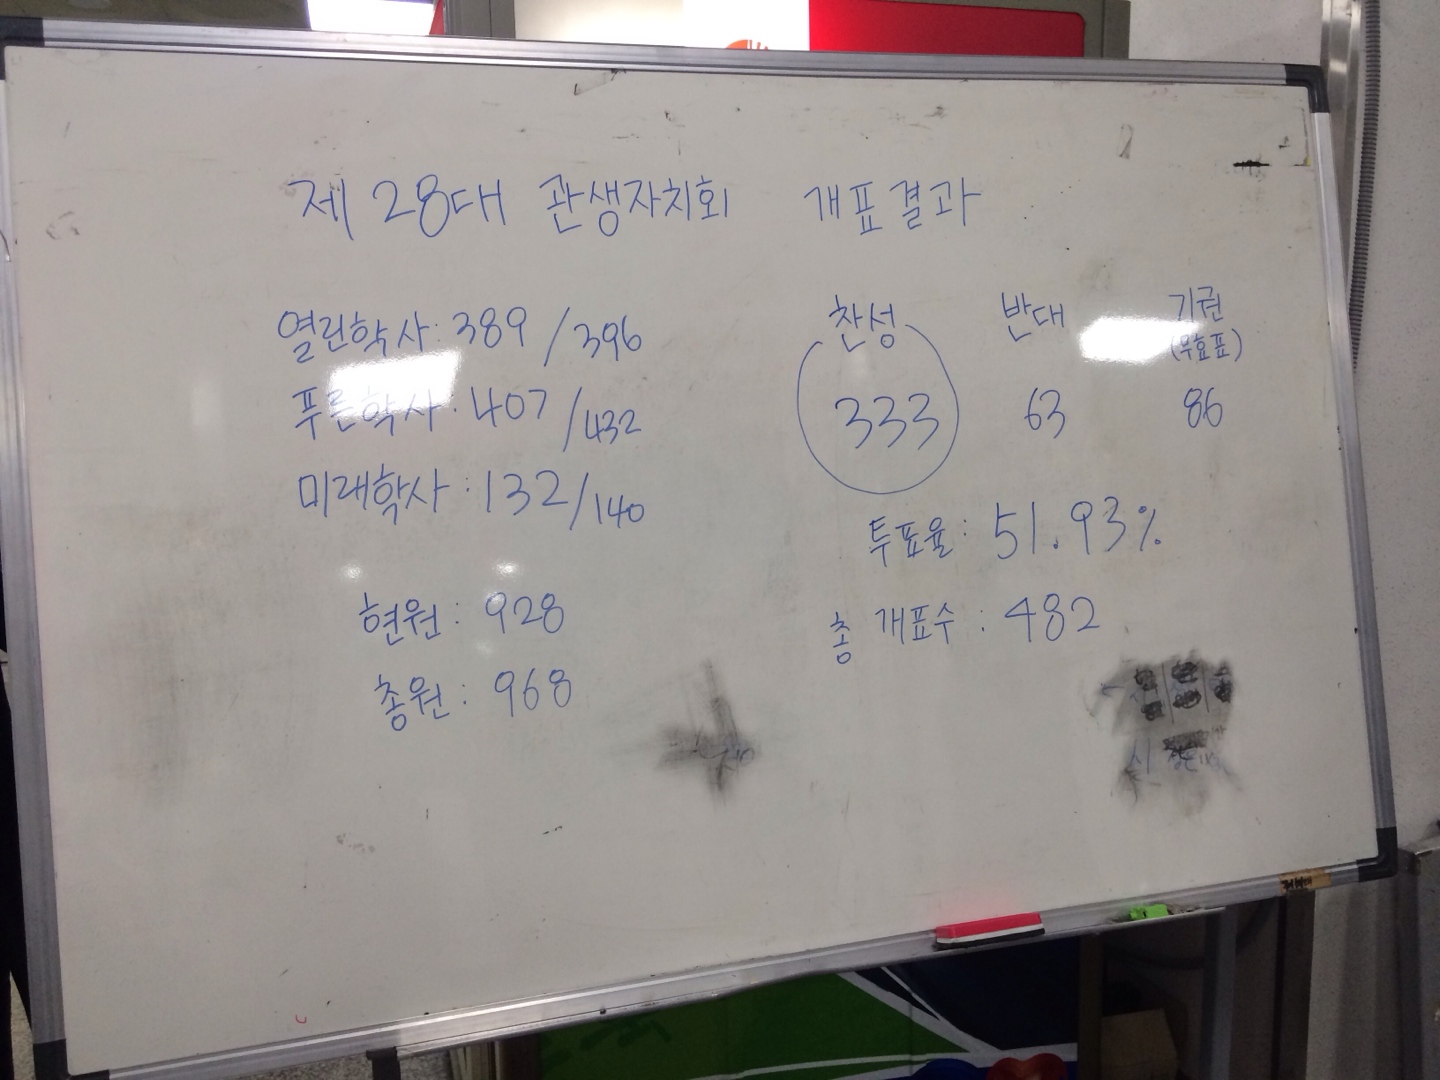 제 28대 관생자치회 개표결과
열린학사: 389/396
푸른학사: 407/432
미래학사: 132/140
현원: 928
총원: 968
찬성 반대 기권
(무효표)
333 63 86
투표율: 51.93%
총 개표수: 482